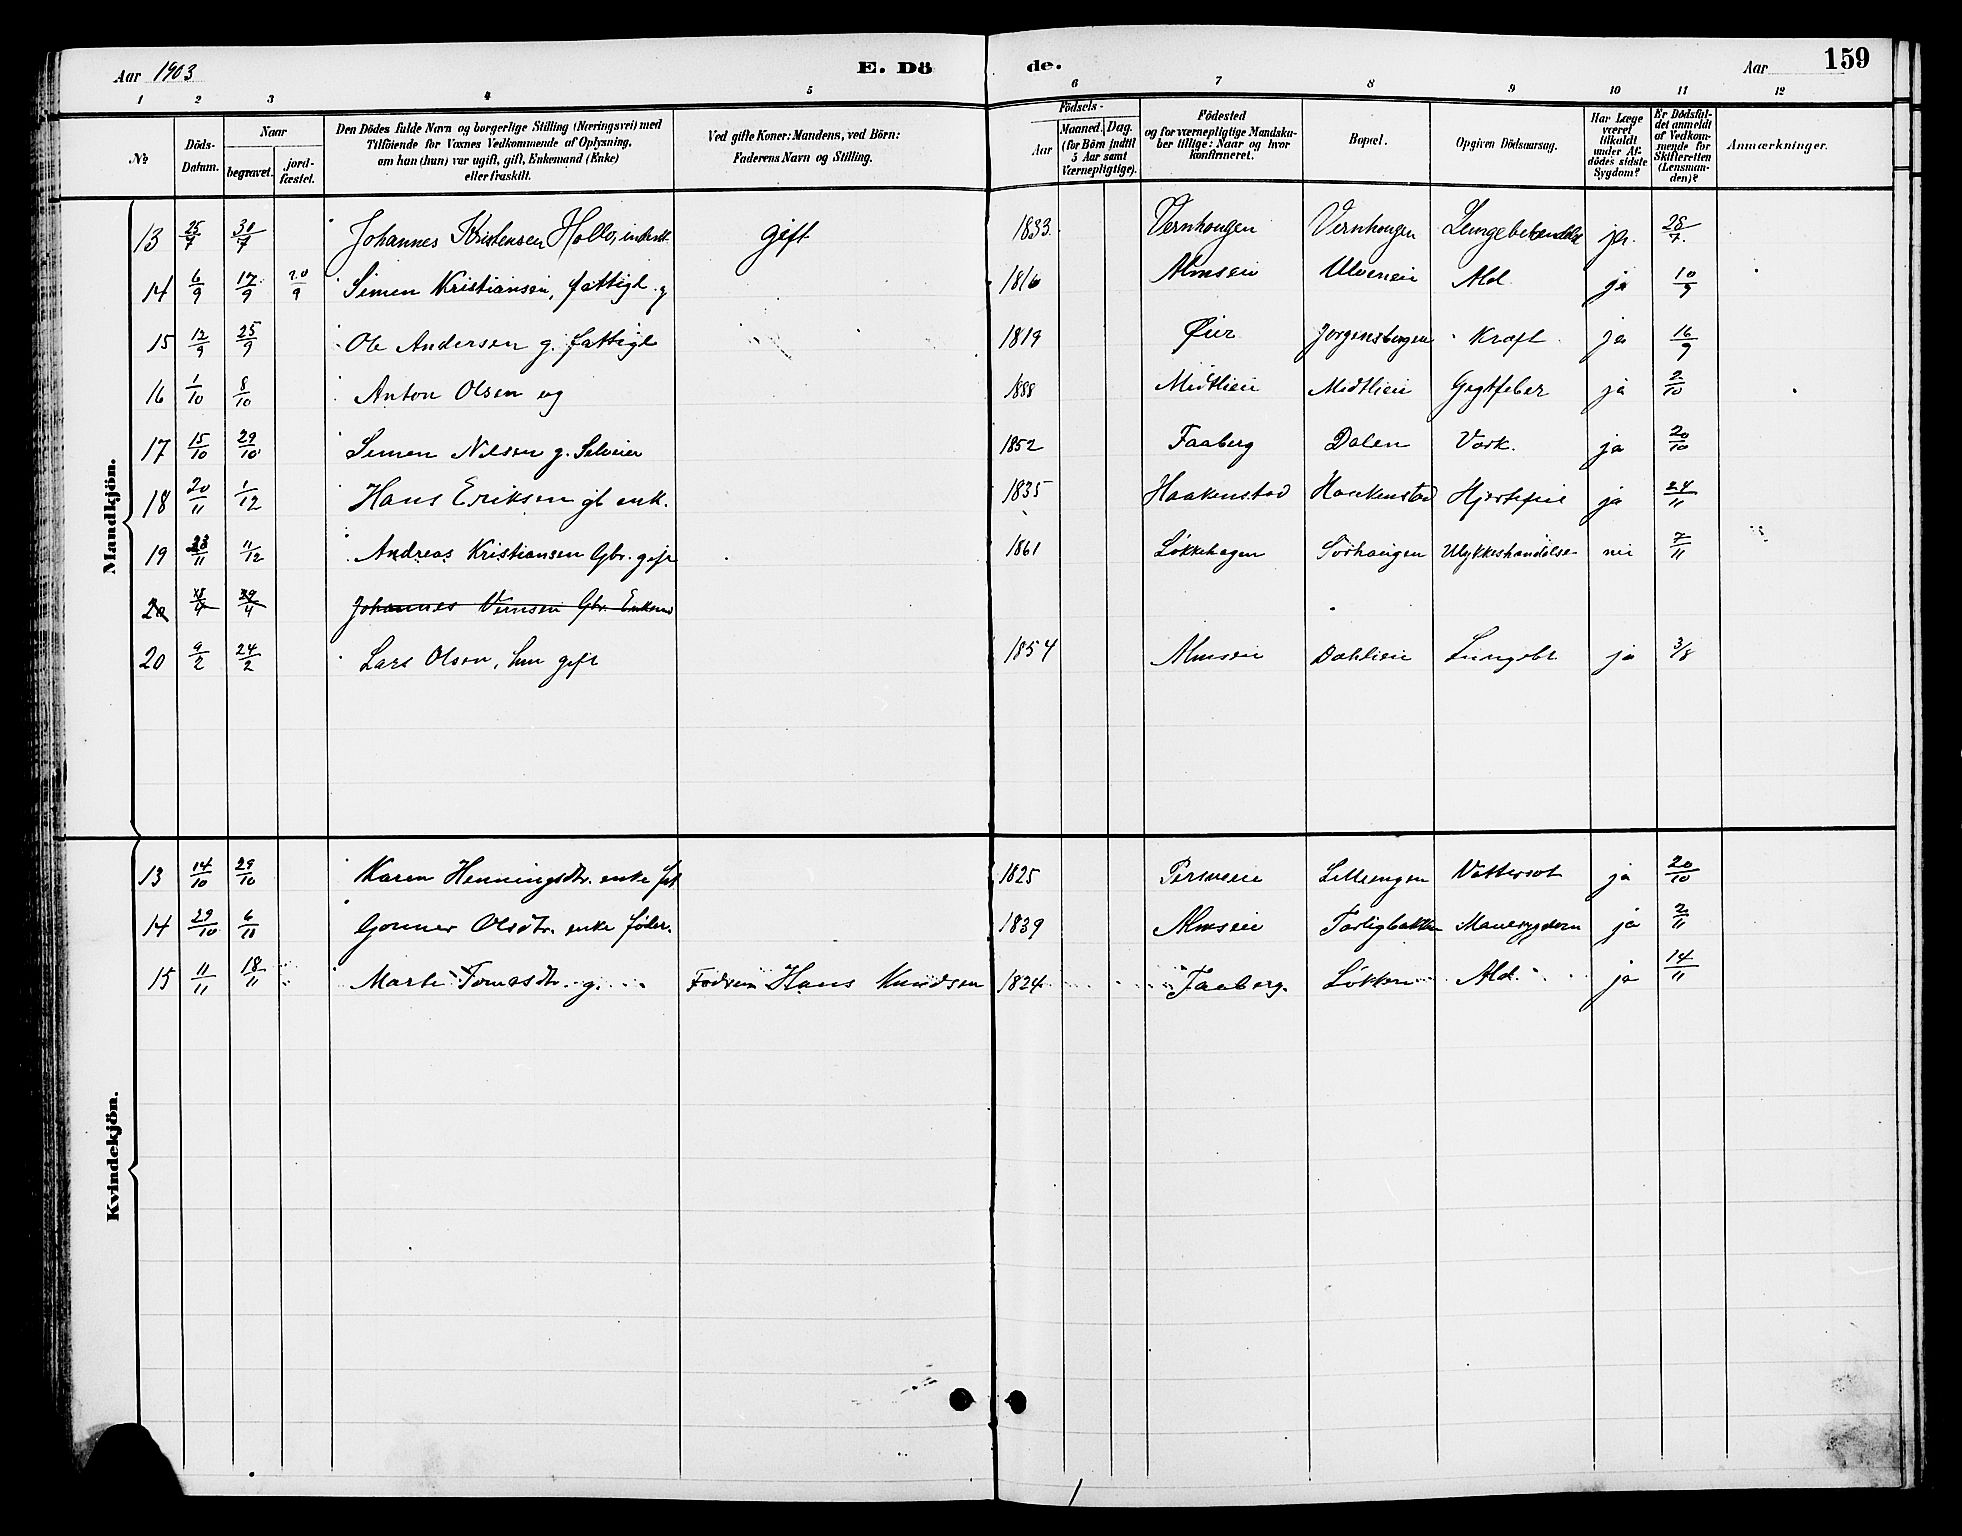 Aar 1903
E. Döde.
Aar
159
1 2 3 4 5 6 7 8 9 10 11 12
No
Döds-Datum.
Naar
begravet.
jord-fæstet.
Den Dödes fulde Navn og borgerlige Stilling (Næringsvei) med
Tilföiende for Voxnes Vedkommende af Oplysning,
om han (hun) var ugift, gift, Enkemand (Enke)
eller fraskilt.
Ved gifte Koner: Mandens, ved Börn:
Faderens Navn og Stilling.
Födsels-
Aar
Maaned. Dag.
(for Börn indtil
5 Aar samt
Værnepligtige).
Födested
og for værnepligtige Mandsku-
ber tillige: Naar og hvor
konfirmeret.
Bopæl.
Opgiven Dödsaarsag.
Har Læge
været
tilkaldt
under Af-
dödes sidste
Sygdom?
Er Dödsfal-
det anmeldt
af Vedkom-
mende for
Skifteretten
(Lensman-
den)?
Anmærkninger.
Mandkjön.
13 25/7 30/7 Johannes Kristensen gift 1833 Vernhougen Vernhougen ja. 28/7
14 6/9 17/9 20/9 Simen Kristiansen, fattigl. g 1816 Almseie Ulveneie Ald ja 10/9
15 12/9 25/9 Ole Andersen g. fattigl 1819 Öier Jorgensbergen Kræft ja 16/9
16 1/10 8/10 Anton Olsen ug 1888 Midtlien Midtlien Gigtfeber ja 2/10
17 15/10 29/10 Simen Nilsen g. Selveier 1852 Faaberg Dalen Værk. ja 20/10
18 20/11 1/12 Hans Eriksen enk. 1835 Haakenstad Haakenstad Hjertefeil ja 24/11
19 23/11 11/12 Andreas Kristiansen Gbr. gift 1861 Løkkehagen Sørhaugen Ulykkeshændelse nei 7/11
20 29/4 Johannes Gbr. Enkem
20 9/2 24/2 Lars Olsen, gift 1854 Almseie Dahlien Lungebt ja 3/8
Kvindekjön.
13 14/10 29/10 Karen Henningsdtr. enke fat 1825 Lilleengen Vattersot ja 20/10
14 29/10 6/11 Olsdtr. enke föder. 1839 Almseie Mavesygdom ja 2/11
15 11/11 18/11 Marte Tomasdtr. g. Hans Knudsen 1824 Faaberg. Løkken Ald. ja 14/11